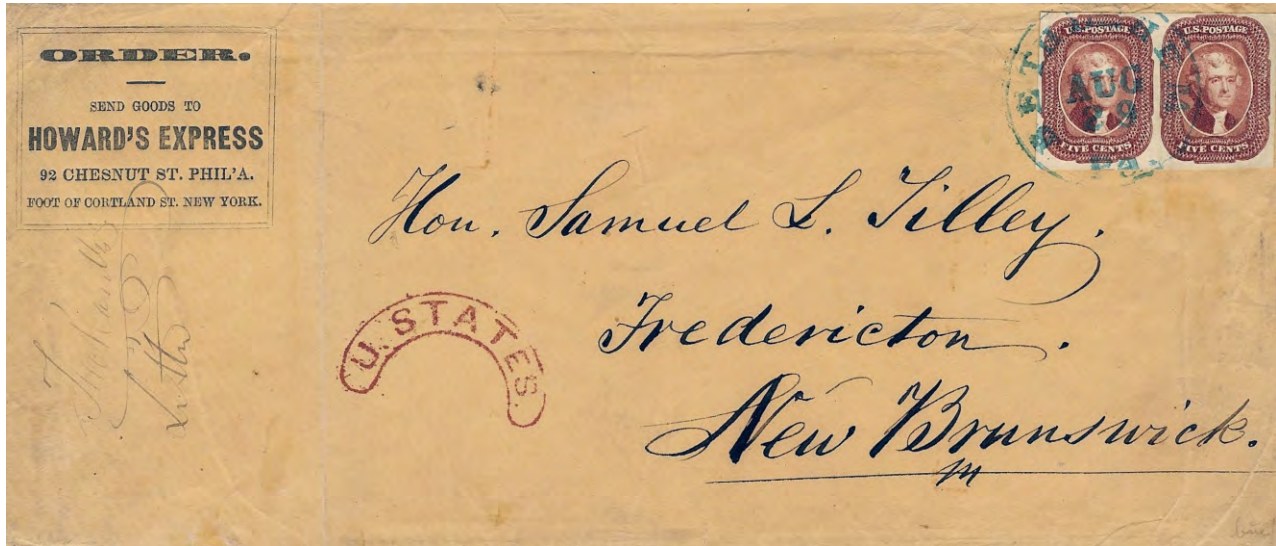 ORDER.
SEND GOODS TO
HOWARD'S EXPRESS
92 CHESNUT ST. PHIL'A.
FOOT OF CORTLAND ST. NEW YORK.
U.S.POSTAGE
FIVE CENTS
U.S.POSTAGE
FIVE CENTS
AUG
29
Pa
Hon. Samuel L. Tilley.
Fredericton.
New Brunswick.
U. STATES.